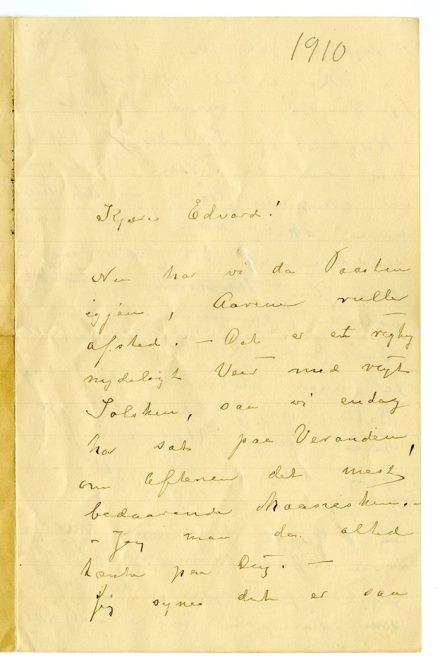 1910
Kjære Edvard!
Nu har vi da Paasken
igjen, Aarene ruller
afsted. — Det er et rigtig
nydeligt Veir med rigt
Solskin, saa vi endag
har sat paa Verandaen,
om Aftenen det mest
bedaarende Maaneskin. —
— Jeg maa da altid
tænke paa Dig. —
Jeg synes det er saa